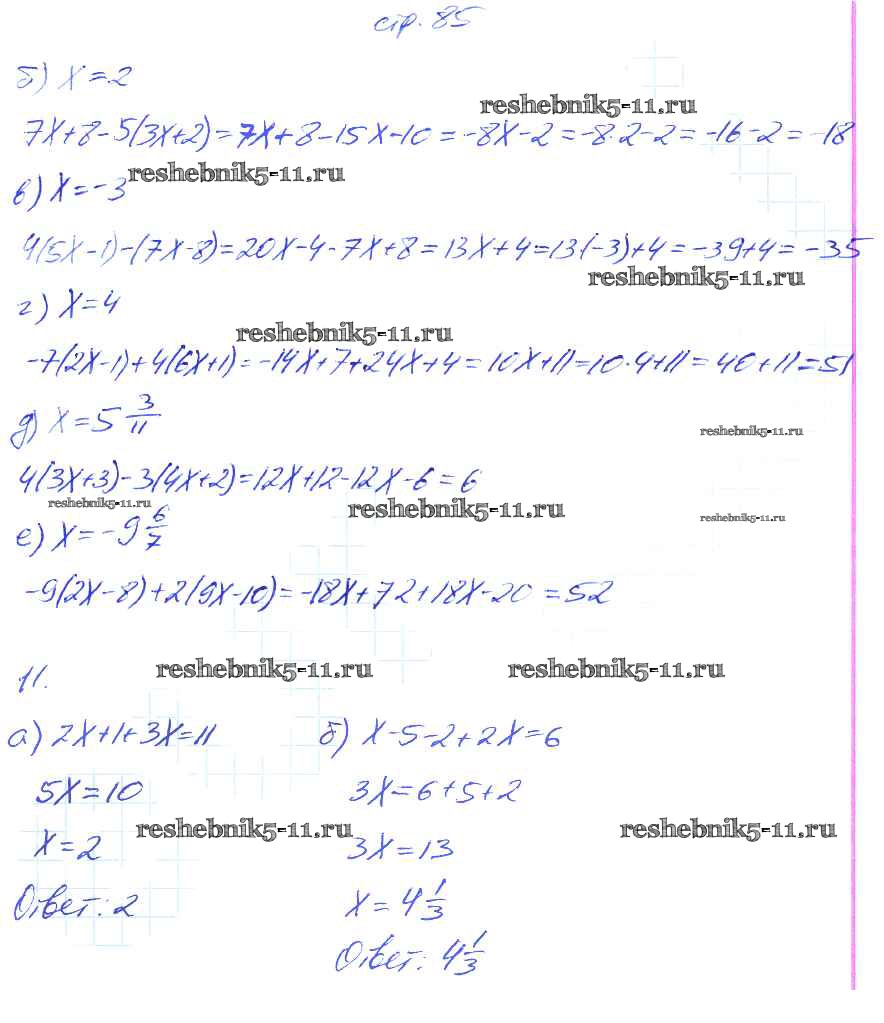 стр. 85
б) x=2
reshebnik5-11.ru
7x+8-5(3x+2)=7x+8-15x-10=-8x-2=-8·2-2=-16-2=-18
reshebnik5-11.ru
в) x=-3
4(5x-1)-(7x-8)=20x-4-7x+8=13x+4=13(-3)+4=-39+4=-35
reshebnik5-11.ru
г) x=4
reshebnik5-11.ru
-7(2x-1)+4(6x+1)=-14x+7+24x+4=10x+11=10·4+11=40+11=51
д) x=5 3/11
reshebnik5-11.ru
4(3x+3)-3(4x+2)=12x+12-12x-6=6
reshebnik5-11.ru reshebnik5-11.ru reshebnik5-11.ru
е) x=-9 6/7
-9(2x-8)+2(9x-10)=-18x+72+18x-20=52
reshebnik5-11.ru reshebnik5-11.ru
11.
а) 2x+1+3x=11 б) x-5-2+2x=6
5x=10 3x=6+5+2
reshebnik5-11.ru reshebnik5-11.ru
x=2 3x=13
Ответ: 2 x=4 1/3
Ответ: 4 1/3